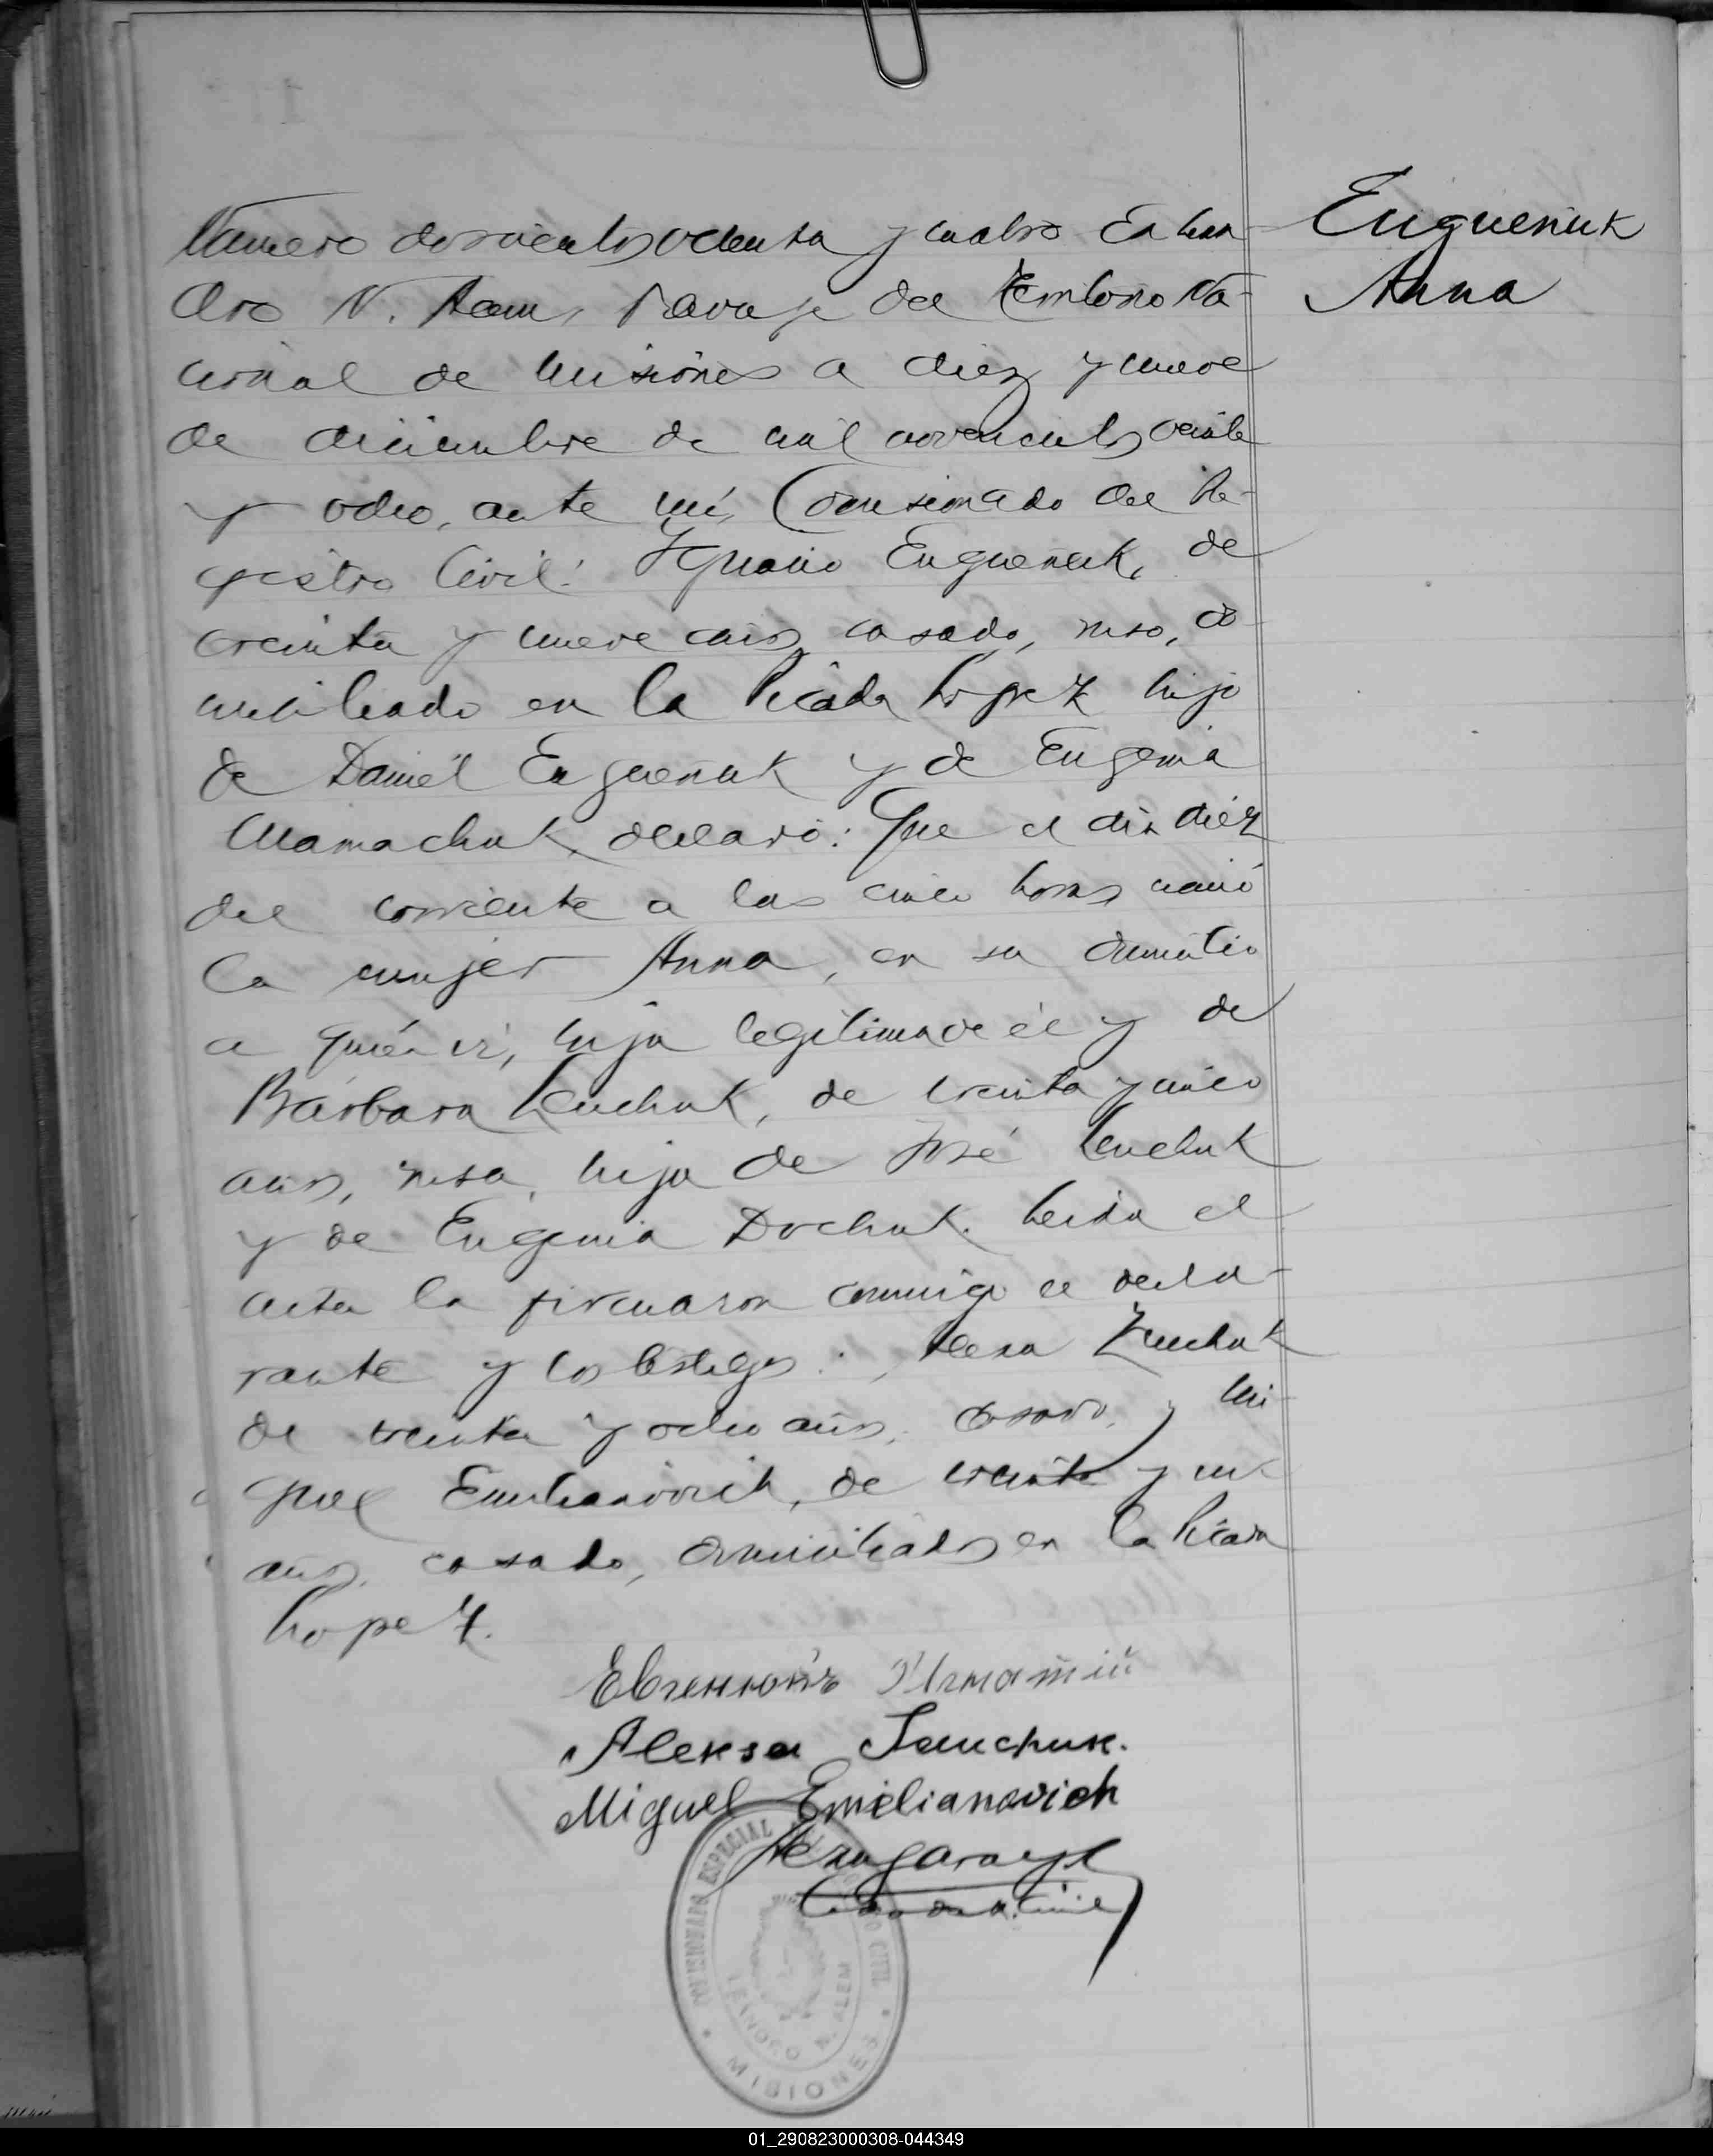 Eugueniuk
Anna
Número doscientos ochenta y cuatro En Lean
dro N. Alem, Paraje del Territorio Na-
cional de Misiones a diez y nueve
de diciembre de mil novecientos veinte
y ocho, ante mí, Comisionado del Re-
gistro Civil: Ignacio Eugueniuk, de
treinta y nueve años, casado, ruso, do
miciliado en la Picada López hijo
de Daniel Eugueniuk y de Eugenia
Mamachuk, declaró: Que el día diez
del corriente a las cinco horas nació
la mujer Anna, en su domicilio
a quién ví, hija legítima de él y de
Bárbara Leuchuk, de treinta y cinco
años, rusa, hija de José Leuchuk
y de Eugenia Dochuk. Leída el
acta la firmaron conmigo el decla-
rante y los testigos: Alexa
de treinta y ocho años, casado, y Mi-
guel Emilianovich, de treinta y un
años, casado, domiciliados en la Picada
López.
Евгенюкъ Игнатій
Aleksa
Miguel Emilianovich
COMISIONADO ESPECIAL DEL REGISTRO CIVIL
LEANDRO N. ALEM
MISIONES
01_290823000308-044349